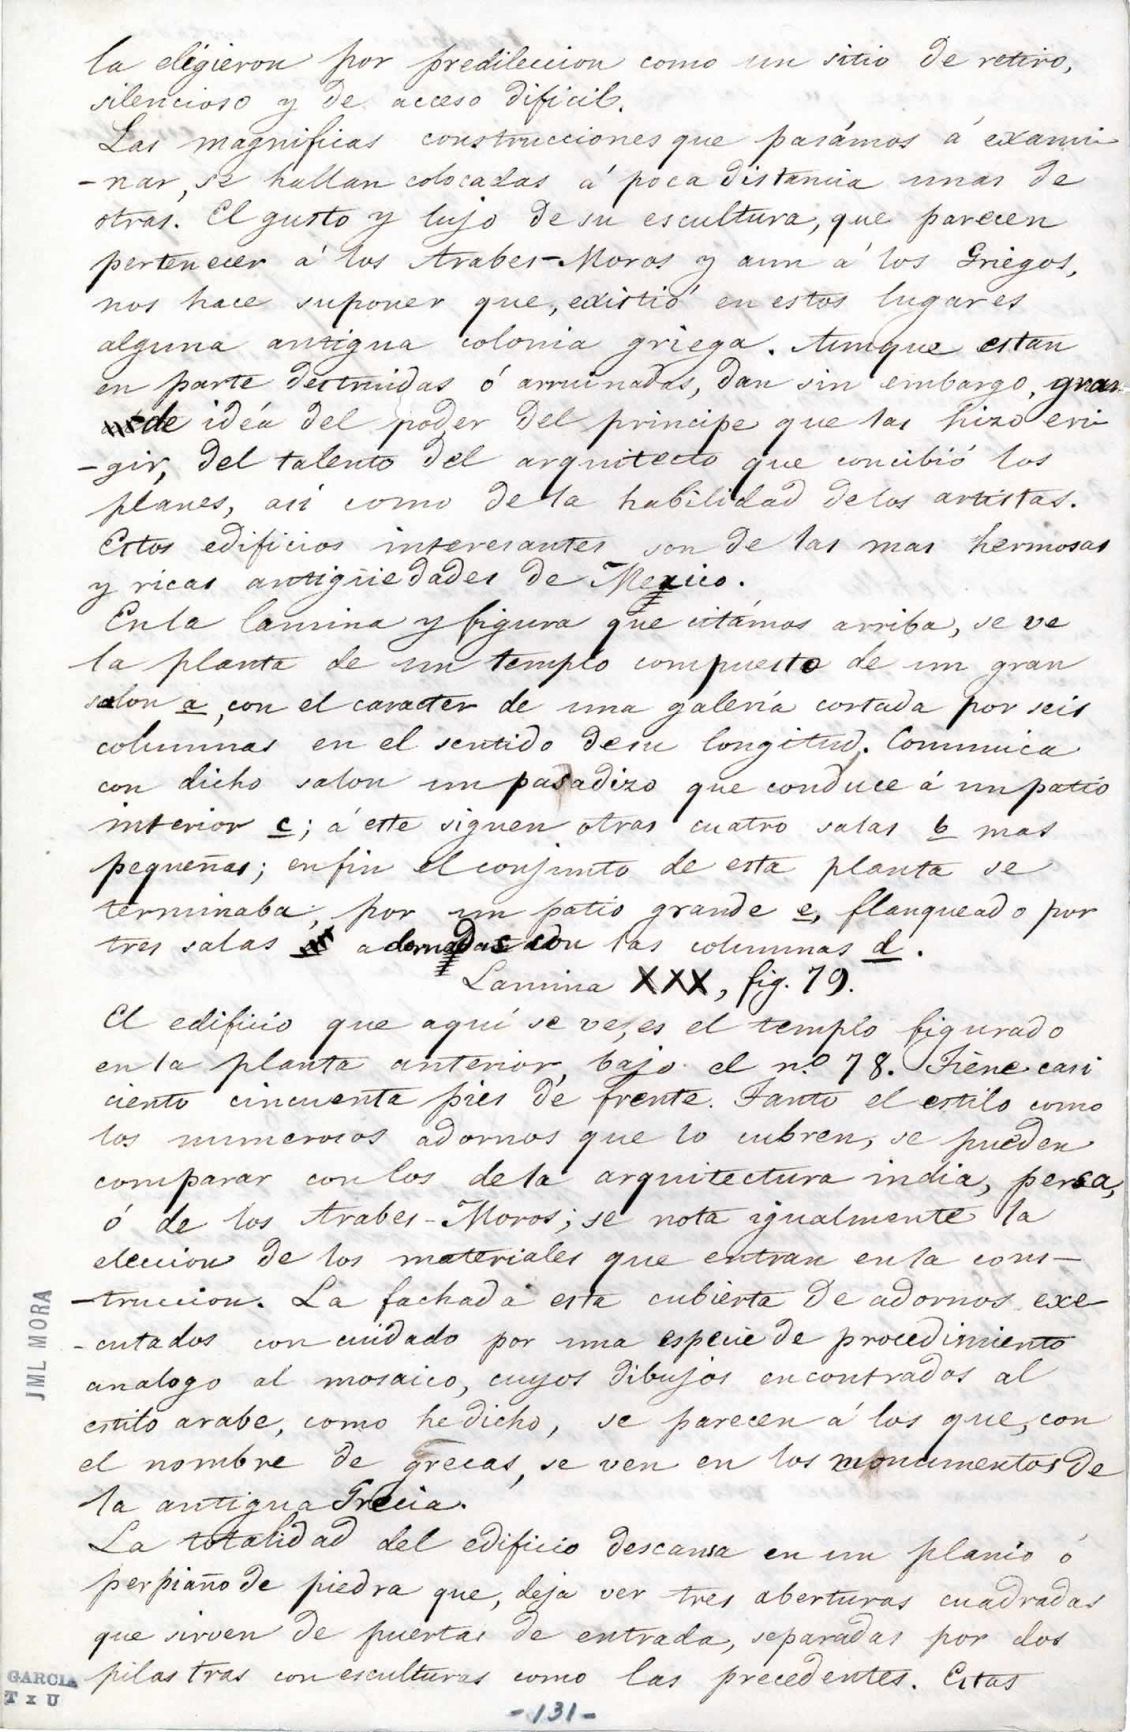 la eligieron por predileccion como un sitio de retiro,
silencioso y de acceso dificil.
Las magnificas construcciones que pasámos á exami-
-nar, se hallan colocadas á poca distancia unas de
otras. El gusto y lujo de su escultura, que parecen
pertenecer á los Arabes-Moros y aun á los Griegos,
nos hace suponer que, existió en estos lugares
alguna antigua colonia griega. Aunque estan
en parte destruidas ó arruinadas, dan sin embargo, gran-
de idéa del poder del principe que las hizo eri-
-gir, del talento del arquitecto que concibió los
planes, asi como de la habilidad de los artistas.
Estos edificios interesantes son de las mas hermosas
y ricas antigüedades de Mexico.
En la lamina y figura que citámos arriba, se ve
la planta de un templo compuesto de un gran
salon a, con el caracter de una galería cortada por seis
columnas en el sentido de su longitud. Comunica
con dicho salon un pasadizo que conduce á un patio
interior c; á este siguen otras cuatro salas b mas
pequeñas; en fin el conjunto de esta planta se
terminaba, por un patio grande e, flanqueado por
tres salas adornadas con las columnas d.
Lamina XXX, fig. 79.
El edificio que aquí se ve, es el templo figurado
en la planta anterior, bajo el n.o 78. Tiene casi
ciento cincuenta pies de frente. Tanto el estilo como
los numerosos adornos que lo cubren, se pueden
comparar con los de la arquitectura india, persa,
ó de los Arabes-Moros; se nota igualmente la
eleccion de los materiales que entran en la cons-
-truccion. La fachada esta cubierta de adornos exe-
-cutados con cuidado por una especie de procedimiento
analogo al mosaico, cuyos dibujos encontrados al
estilo arabe, como he dicho, se parecen á los que, con
el nombre de grecas, se ven en los monumentos de
la antigua Grecia.
La totalidad del edificio descansa en un planio ó
perpiaño de piedra que, deja ver tres aberturas cuadradas
que sirven de puertas de entrada, separadas por dos
pilastras con esculturas como las precedentes. Estas
JML MORA
GARCIA
T x U
-131-